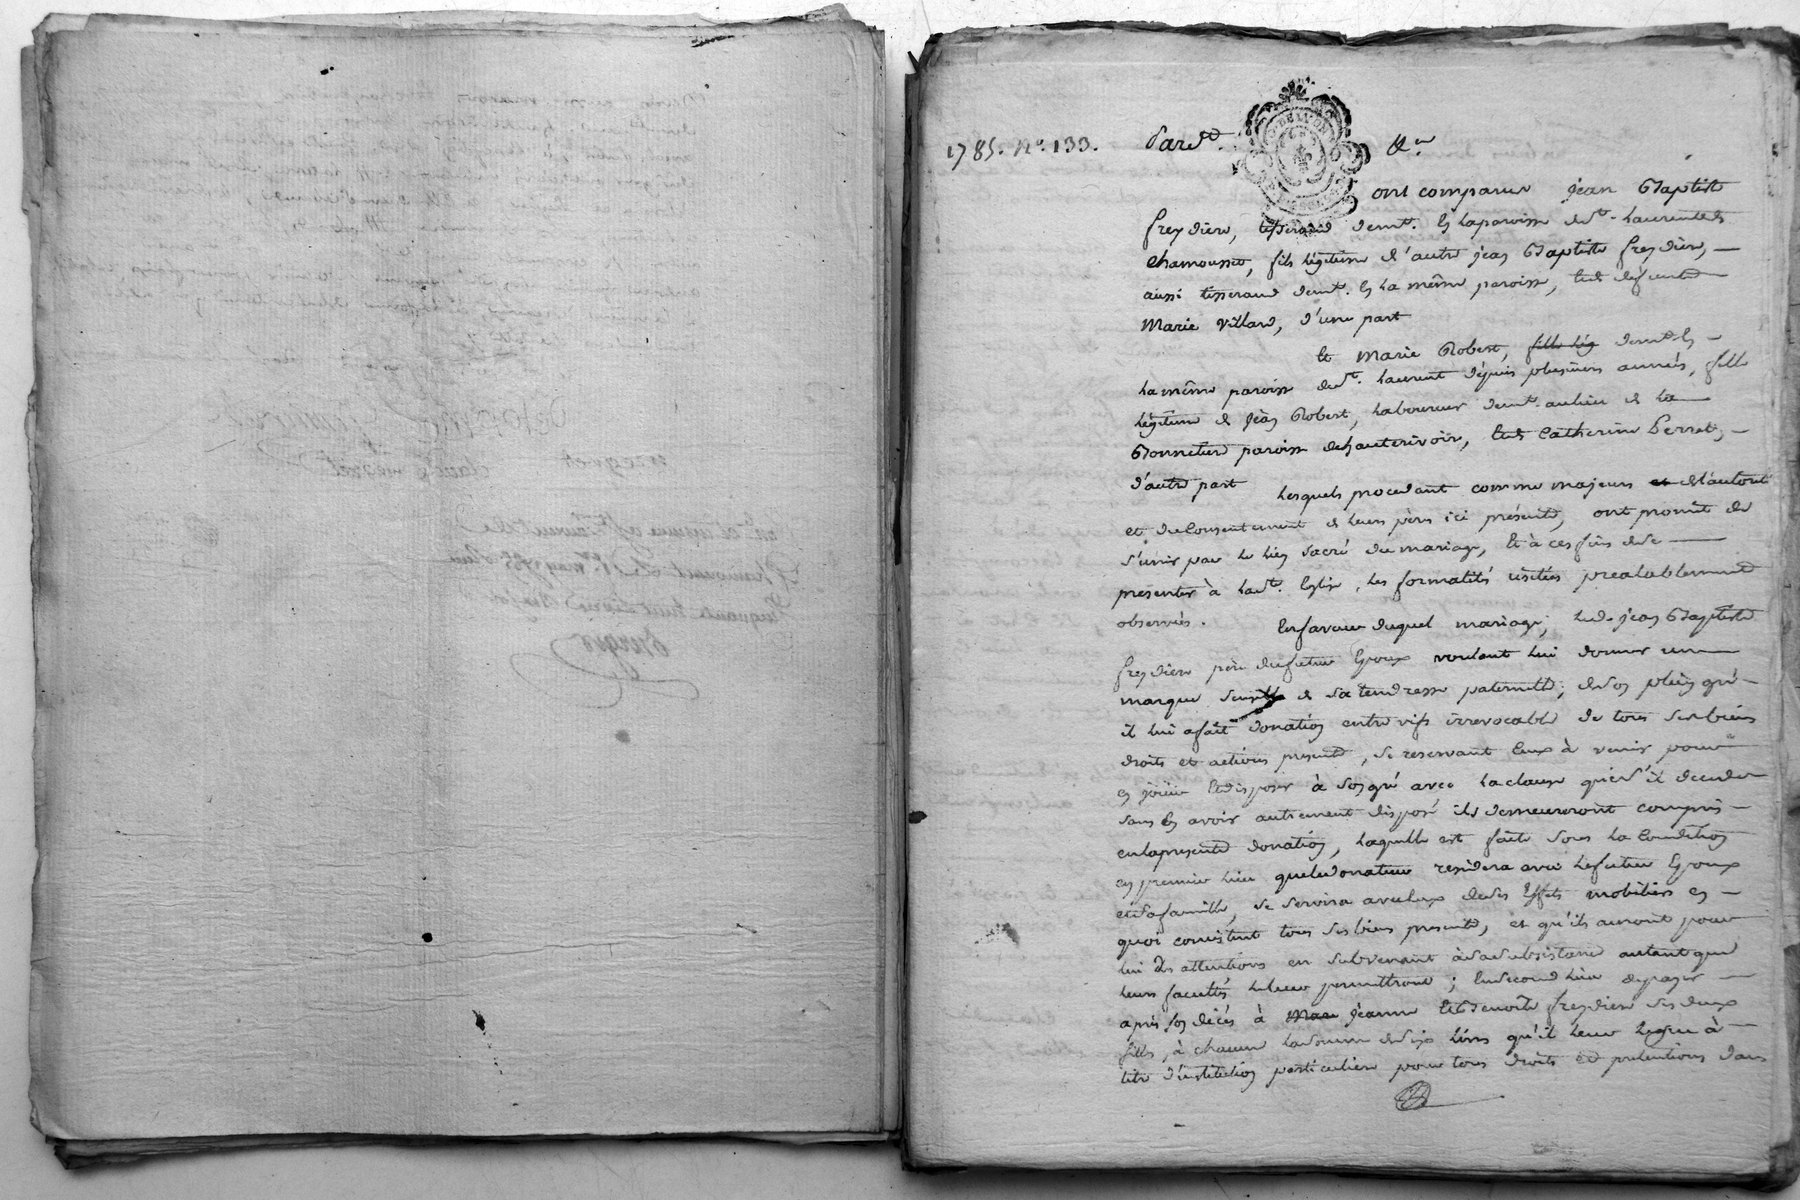 1785. N°. 133. Pard.t &.a
DE LYON
ont comparus jean Baptiste
freydiere, tisserand demt. En la paroisse de St. Laurent de
Chamousset, fils légitime d'autre jean Baptiste freydiere,
aussi tisserand demt. En la même paroisse, Et de défunte
Marie Villard, d'une part
Et Marie Robert, fille lég demt. En
la même paroisse de St. Laurent depuis plusieurs années, fille
légitime de jean Robert, laboureur demt. au lieu de la
Bonnetiere paroisse de hauterivoir, Et de Catherine Perret,
d'autre part
Lesquels procedant comme majeurs et de l'autorité
et du Consentement de leurs pères ici présents, ont promit de
s'unir par le lien sacré du mariage, Et à ces fins de se
presenter à la Ste. Eglise, les formalités usitées préalablement
observées.
En faveur duquel mariage, led. jean Baptiste
freydiere père du futur Epoux voulant lui donner une
marque sensible de sa tendresse paternelle, de son plein gré
il lui a fait donation entre vifs irrevocable de tous ses biens
droits et actions presents, se reservant Ceux à venir pour
en jouir Et disposer à son gré avec la clause que s'il decede
sans en avoir autrement disposé ils demeureront compris
en la presente donation, laquelle est faite sous la Condition
en premier lieu que le donateur residera avec le futur Epoux
et sa famille, se servira avec eux de ses Effets mobiliers en
quoi consistent tous ses biens presents, et qu'ils auront pour
lui des attentions en subvenant à sa subsistance autant que
leurs facultés le leur permettront; En second lieu de payer
après son décès à Marie jeanne Et Benoite freydiere ses deux
filles, à chacune la somme de six livres qu'il leur legue à
titre d'institution particuliere pour tous droits et pretentions dans